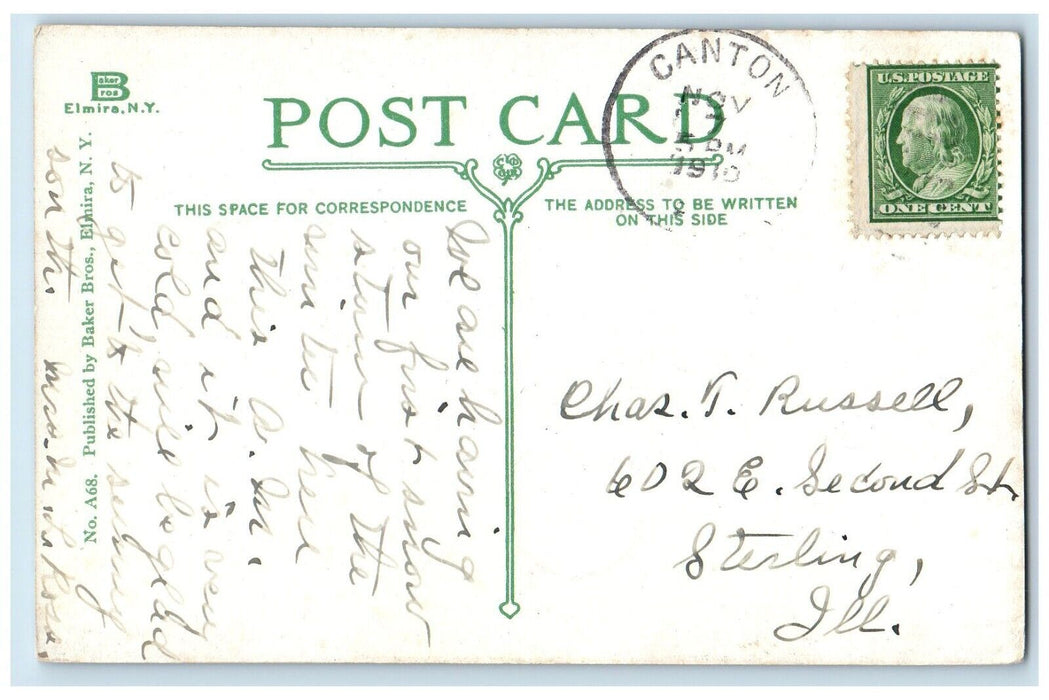 Baker
Bros
Elmira, N.Y.
POST CARD
THIS SPACE FOR CORRESPONDENCE
THE ADDRESS TO BE WRITTEN
ON THIS SIDE
CANTON
NOV
5 PM
1910
U.S. POSTAGE
ONE CENT
No. A68. Published by Baker Bros., Elmira, N. Y.
We are having
our first snow
storm of the
winter here
this a.m.
and it is very
cold, will be glad
to get to the sunny
south.
Chas. T. Russell,
602 E. Second St.
Sterling,
Ill.